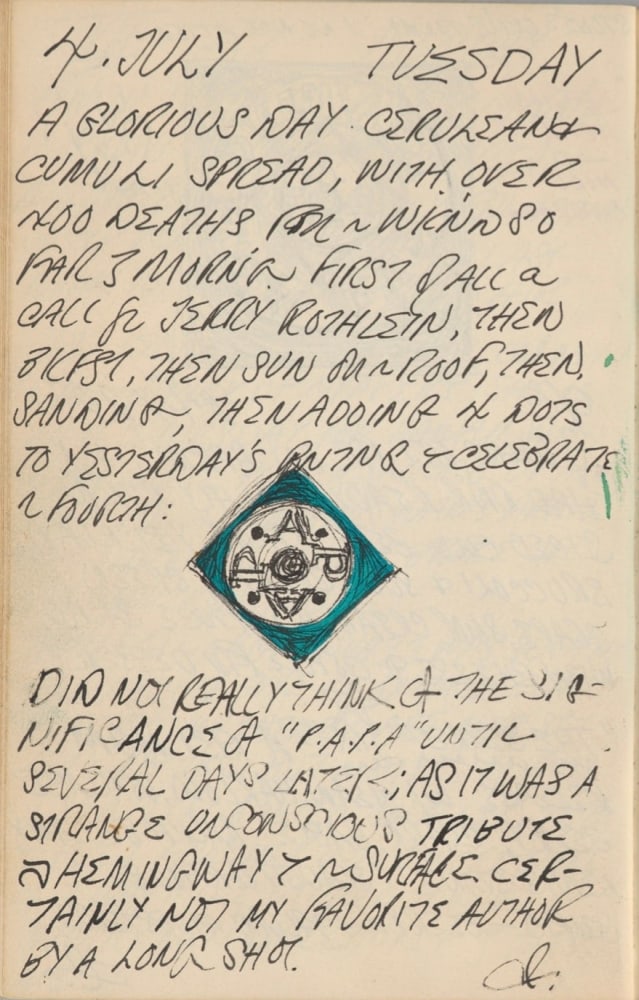 4. JULY TUESDAY
A GLORIOUS DAY. CERULEAN &
CUMULI SPREAD, WITH OVER
400 DEATHS FOR ~ WKN'D SO
FAR 3 MORN'G FIRST OF ALL a
CALL fr JERRY ROTHLEIN, THEN
BKFST, THEN SUN ON ~ ROOF, THEN,
SANDING, THEN ADDING 4 DOTS
TO YESTERDAY'S PNTNG & CELEBRATE
~ FOURTH:
P A P A
DID NOT REALLY THINK OF THE SIG-
NIFICANCE OF "P.A.P.A" UNTIL
SEVERAL DAYS LATER; AS IT WAS A
STRANGE UNCONSCIOUS TRIBUTE
HEMINGWAY & ~ SURFACE CER-
TAINLY NOT MY FAVORITE AUTHOR
BY A LONG SHOT.